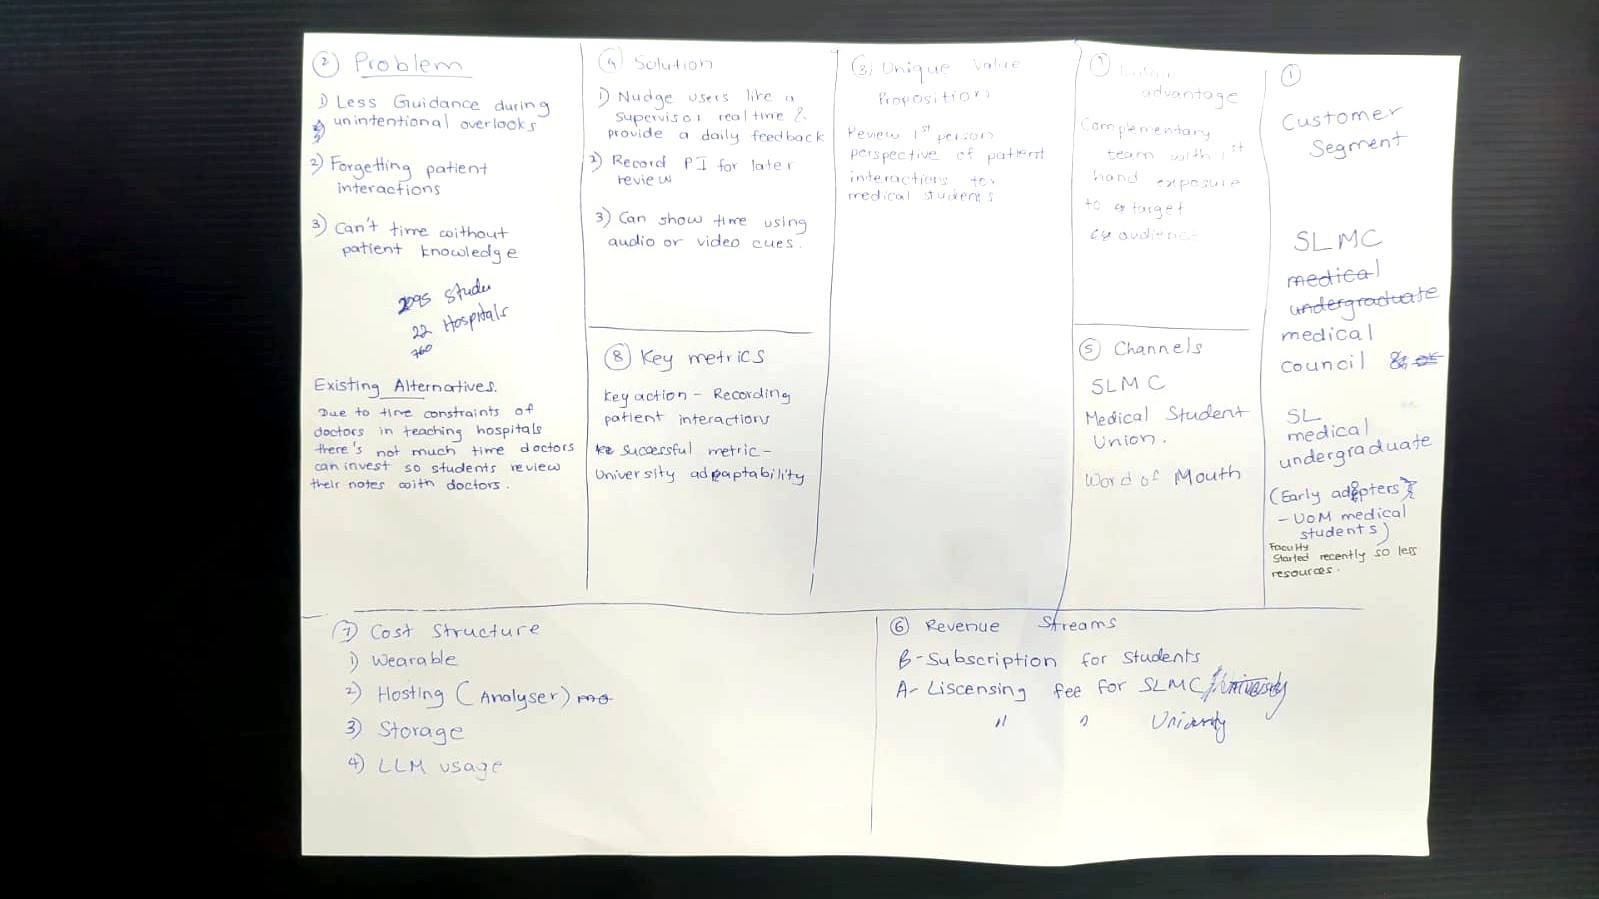 ② Problem
1) Less Guidance during
unintentional overlooks
2) Forgetting patient
interactions
3) Can't time without
patient knowledge
2095 Stude
22 Hospitals
760
Existing Alternatives.
Due to time constraints of
doctors in teaching hospitals
there's not much time doctors
can invest so students review
their notes with doctors.
④ Solution
1) Nudge users like a
supervisor real time &
provide a daily feedback
2) Record PI for later
review
3) Can show time using
audio or video cues.
⑧ Key metrics
Key action - Recording
patient interactions
Successful metric -
University adpaptability
③ Unique Value
Proposition
Review 1st person
perspective of patient
interactions for
medical students
advantage
Complementary
team with 1st
hand exposure
to target
audience
⑤ Channels
SLMC
Medical Student
Union.
Word of Mouth
①
Customer
Segment
SLMC
medical
undergraduate
medical
council
SL
medical
undergraduate
(Early adopters
- UoM medical
students)
Faculty
Started recently so less
resources.
⑦ Cost Structure
1) Wearable
2) Hosting (Analyser)
3) Storage
4) LLM usage
⑥ Revenue Streams
B - Subscription for students
A - Liscensing fee for SLMC / University
" " University